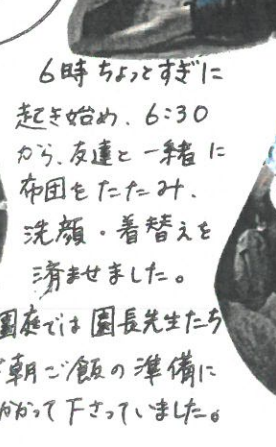 6時ちょっとすぎに
起き始め、6:30
から、友達と一緒に
布団をたたみ、
洗顔・着替えを
済ませました。
園庭では園長先生たち
朝ご飯の準備に
かかって下さっていました。